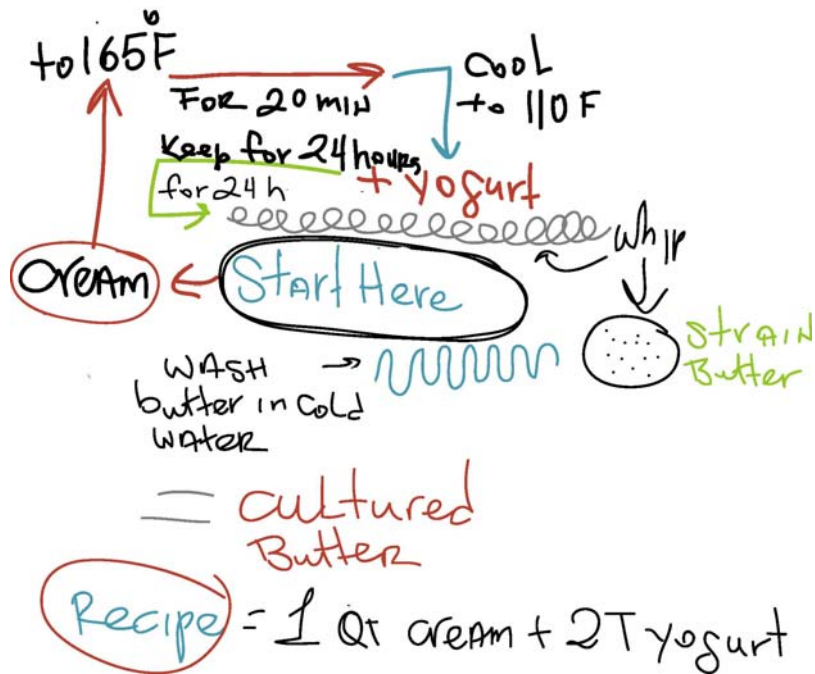 to 165°F
For 20 min
Cool
to 110 F
Keep for 24 hours
for 24 h
+ yogurt
whip
Start Here
Cream
Strain
Butter
Wash
butter in cold
water
= cultured
Butter
Recipe = 1 Qt cream + 2T yogurt